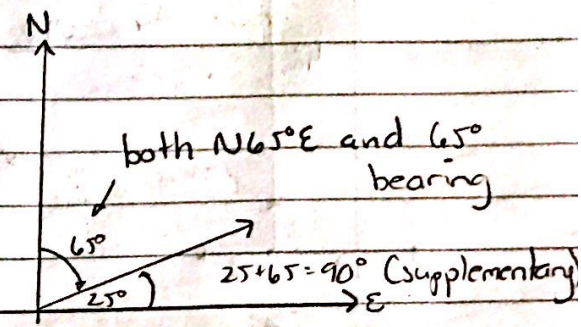 N
both N65°E and 65°
bearing
65°
25+65=90° (supplementary)
25°
E